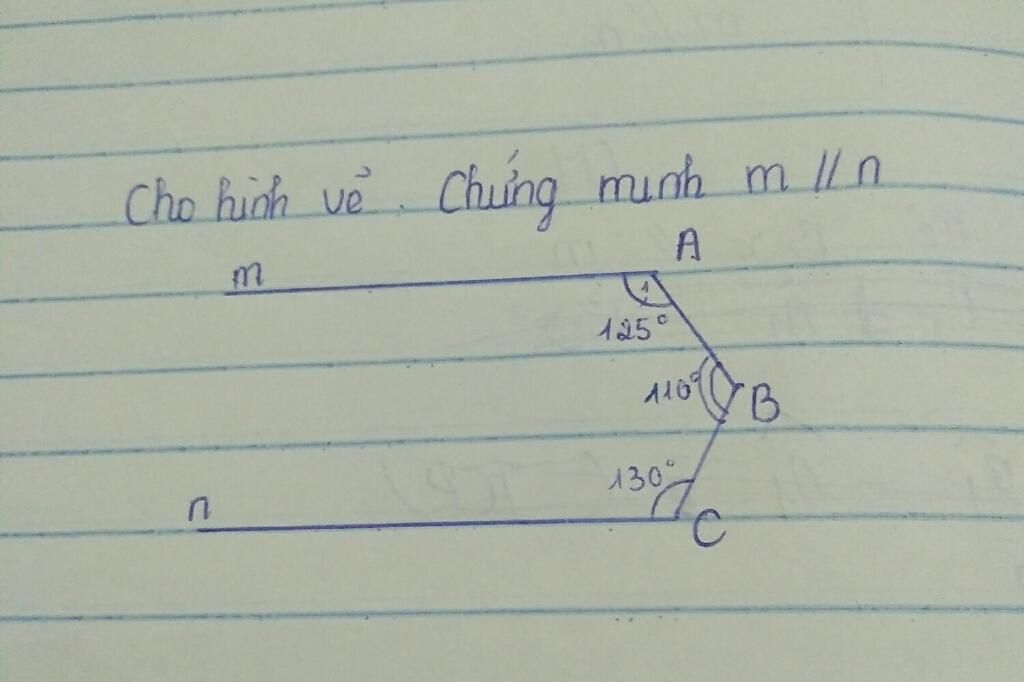 Cho hình vẽ. Chứng minh m // n
A
m
1
125°
110°
B
130°
n
C